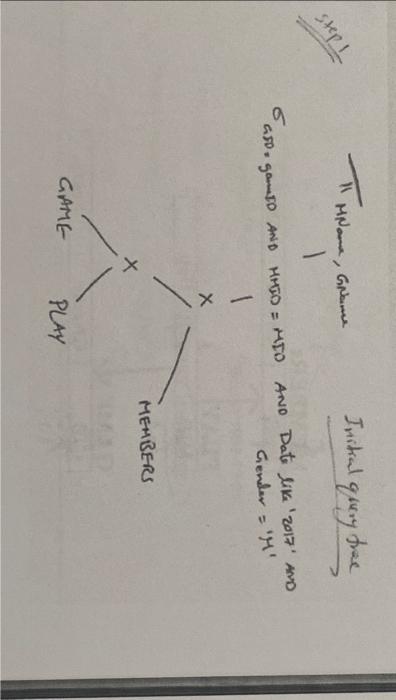 Step 1
Initial query tree
π MName, GName
σ GID = gameID AND MMID = MID AND Date like '2017' AND
Gender = 'M'
X
X
MEMBERS
GAME PLAY